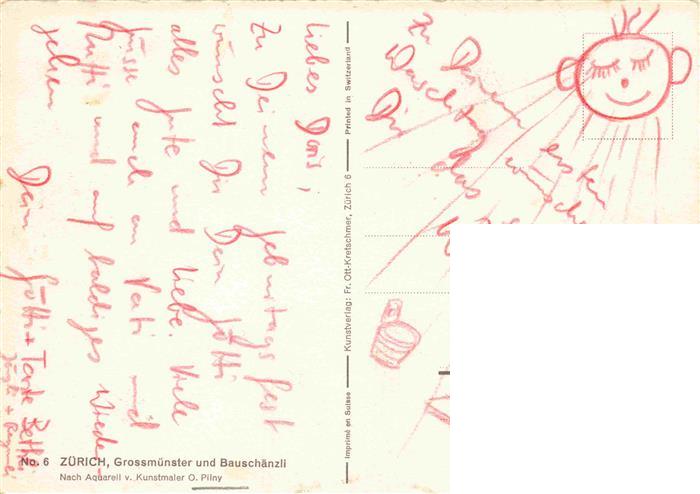 Liebes Doris,
zu Deinem Geburtstagsfest
wünscht Dir Dein Götti
alles Gute und Liebe. Viele
Grüsse auch an Vati und
Mutti und auf baldiges Wieder-
sehen
Dein Götti + Tante Bethli
No. 6 ZÜRICH, Grossmünster und Bauschänzli
Nach Aquarell v. Kunstmaler O. Pilny
Imprimé en Suisse
Kunstverlag: Fr. Ott-Kretschmer, Zürich 6
Printed in Switzerland
Zu Deinem
ersten
wünscht
Dir das